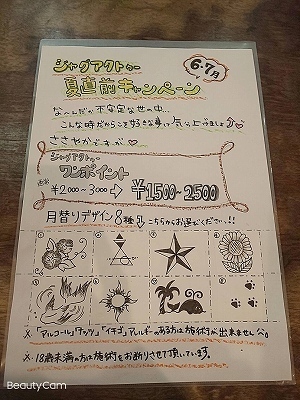 ジャグアタトゥー
夏直前キャンペーン
6・7月
なーんだか不安定な世の中…
こんな時だからこそ好きな事で気分上げましょ♪♡
ささやかですが♡
ジャグアタトゥー
ワンポイント
通常
¥2000~3000→¥1500~2500
月替りデザイン8種 こちらからお選びください!!
※「アルコール」「ナッツ」「イチゴ」アレルギーのある方は施術が出来ません
※18歳未満の方は施術をお断りさせて頂いています。
BeautyCam